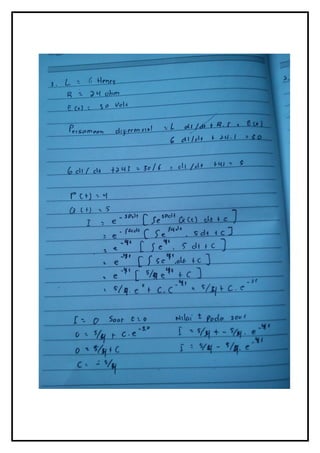 1. L = 6 Henry
R = 24 ohm
E(t) = 30 Volt
Persamaan diferensial = L dI/dt + R.I = E(t)
6 dI/dt + 24.I = 30
6 dI/dt + 24I = 30/6 = dI/dt + 4I = 5
P(t) = 4
Q(t) = 5
I = e^-∫Pdt [∫e^∫Pdt Q(t) dt + c]
= e^-∫4dt [∫e^∫4dt . 5 dt + c]
= e^-4t [∫e^4t . 5 dt + c]
= e^-4t [∫5e^4t . dt + c]
= e^-4t [5/4 e^4t + c]
= 5/4 . e^0 + c.e^-4t = 5/4 + c.e^-4t
I = 0 Saat t = 0
0 = 5/4 + c.e^-4.0
0 = 5/4 + c
c = -5/4
Nilai I Pada saat
I = 5/4 + -5/4 . e^-4t
I = 5/4 - 5/4 . e^-4t